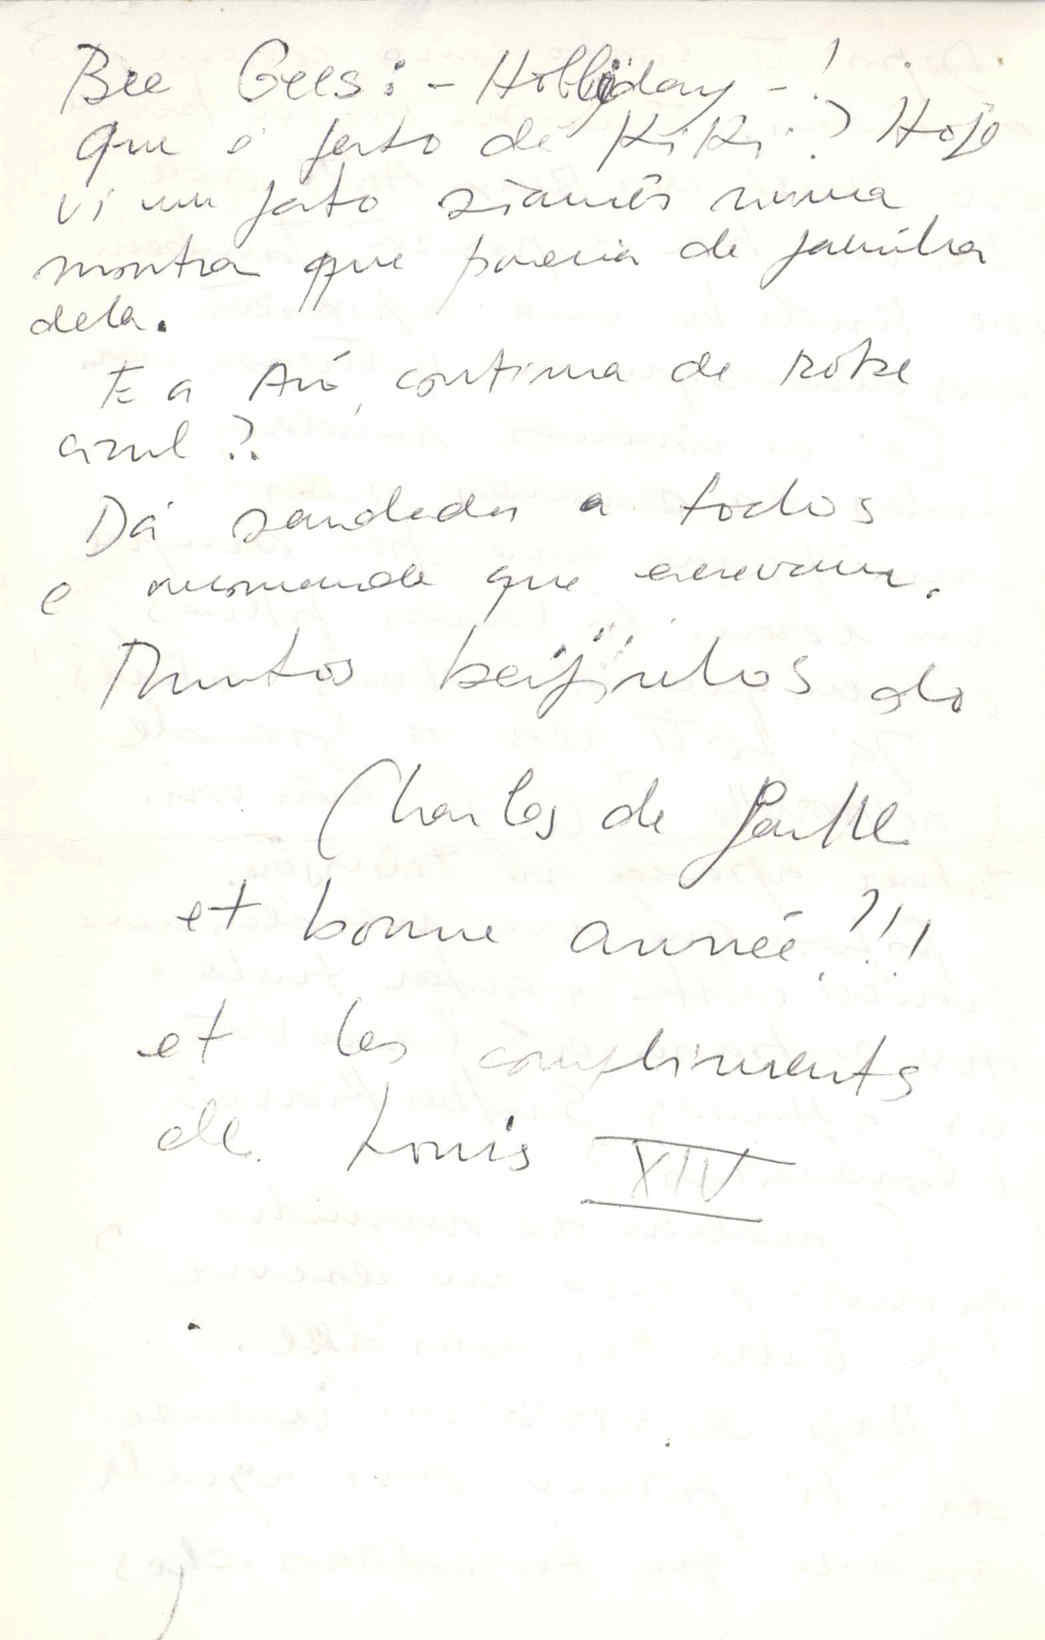 Bee Gees: - Holliday - !
Que é feito de Kiki? Hoje
vi um gato siamês numa
montra que parecia de família
dela.
E a Avó, continua de robe
azul?
Dá saudades a todos
e recomenda que escrevam.
Muitos beijinhos do
Charles de Gaulle
et bonne année!!!
et les compliments
de Louis XIV